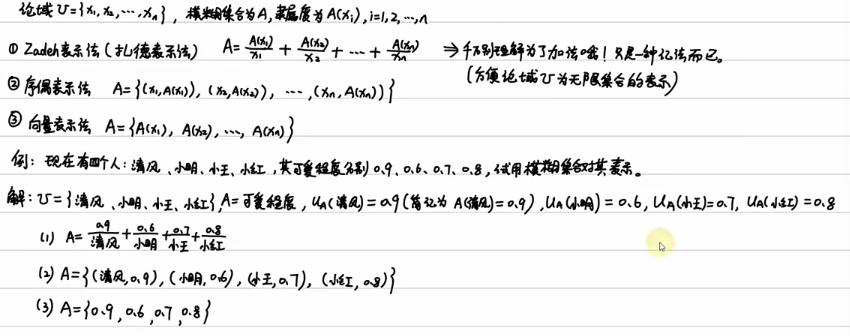 论域 U={x₁,x₂,⋯,xₙ}，模糊集合为A，隶属度为A(xᵢ)，i=1,2,⋯,n
① Zadeh表示法（扎德表示法） A=A(x₁)/x₁+A(x₂)/x₂+⋯+A(xₙ)/xₙ ⇒千万别理解为了加法哦！只是一种记法而已。
（方便论域U为无限集合的表示）
② 序偶表示法 A={(x₁,A(x₁)),(x₂,A(x₂)),⋯,(xₙ,A(xₙ))}
③ 向量表示法 A={A(x₁),A(x₂),⋯,A(xₙ)}
例：现在有四个人：清风、小明、小王、小红，其可爱程度分别0.9、0.6、0.7、0.8，试用模糊集合对其表示。
解：U={清风、小明、小王、小红}，A=可爱程度，U_A(清风)=0.9（简记为 A(清风)=0.9），U_A(小明)=0.6，U_A(小王)=0.7，U_A(小红)=0.8
(1) A=0.9/清风+0.6/小明+0.7/小王+0.8/小红
(2) A={(清风,0.9),(小明,0.6),(小王,0.7),(小红,0.8)}
(3) A={0.9,0.6,0.7,0.8}